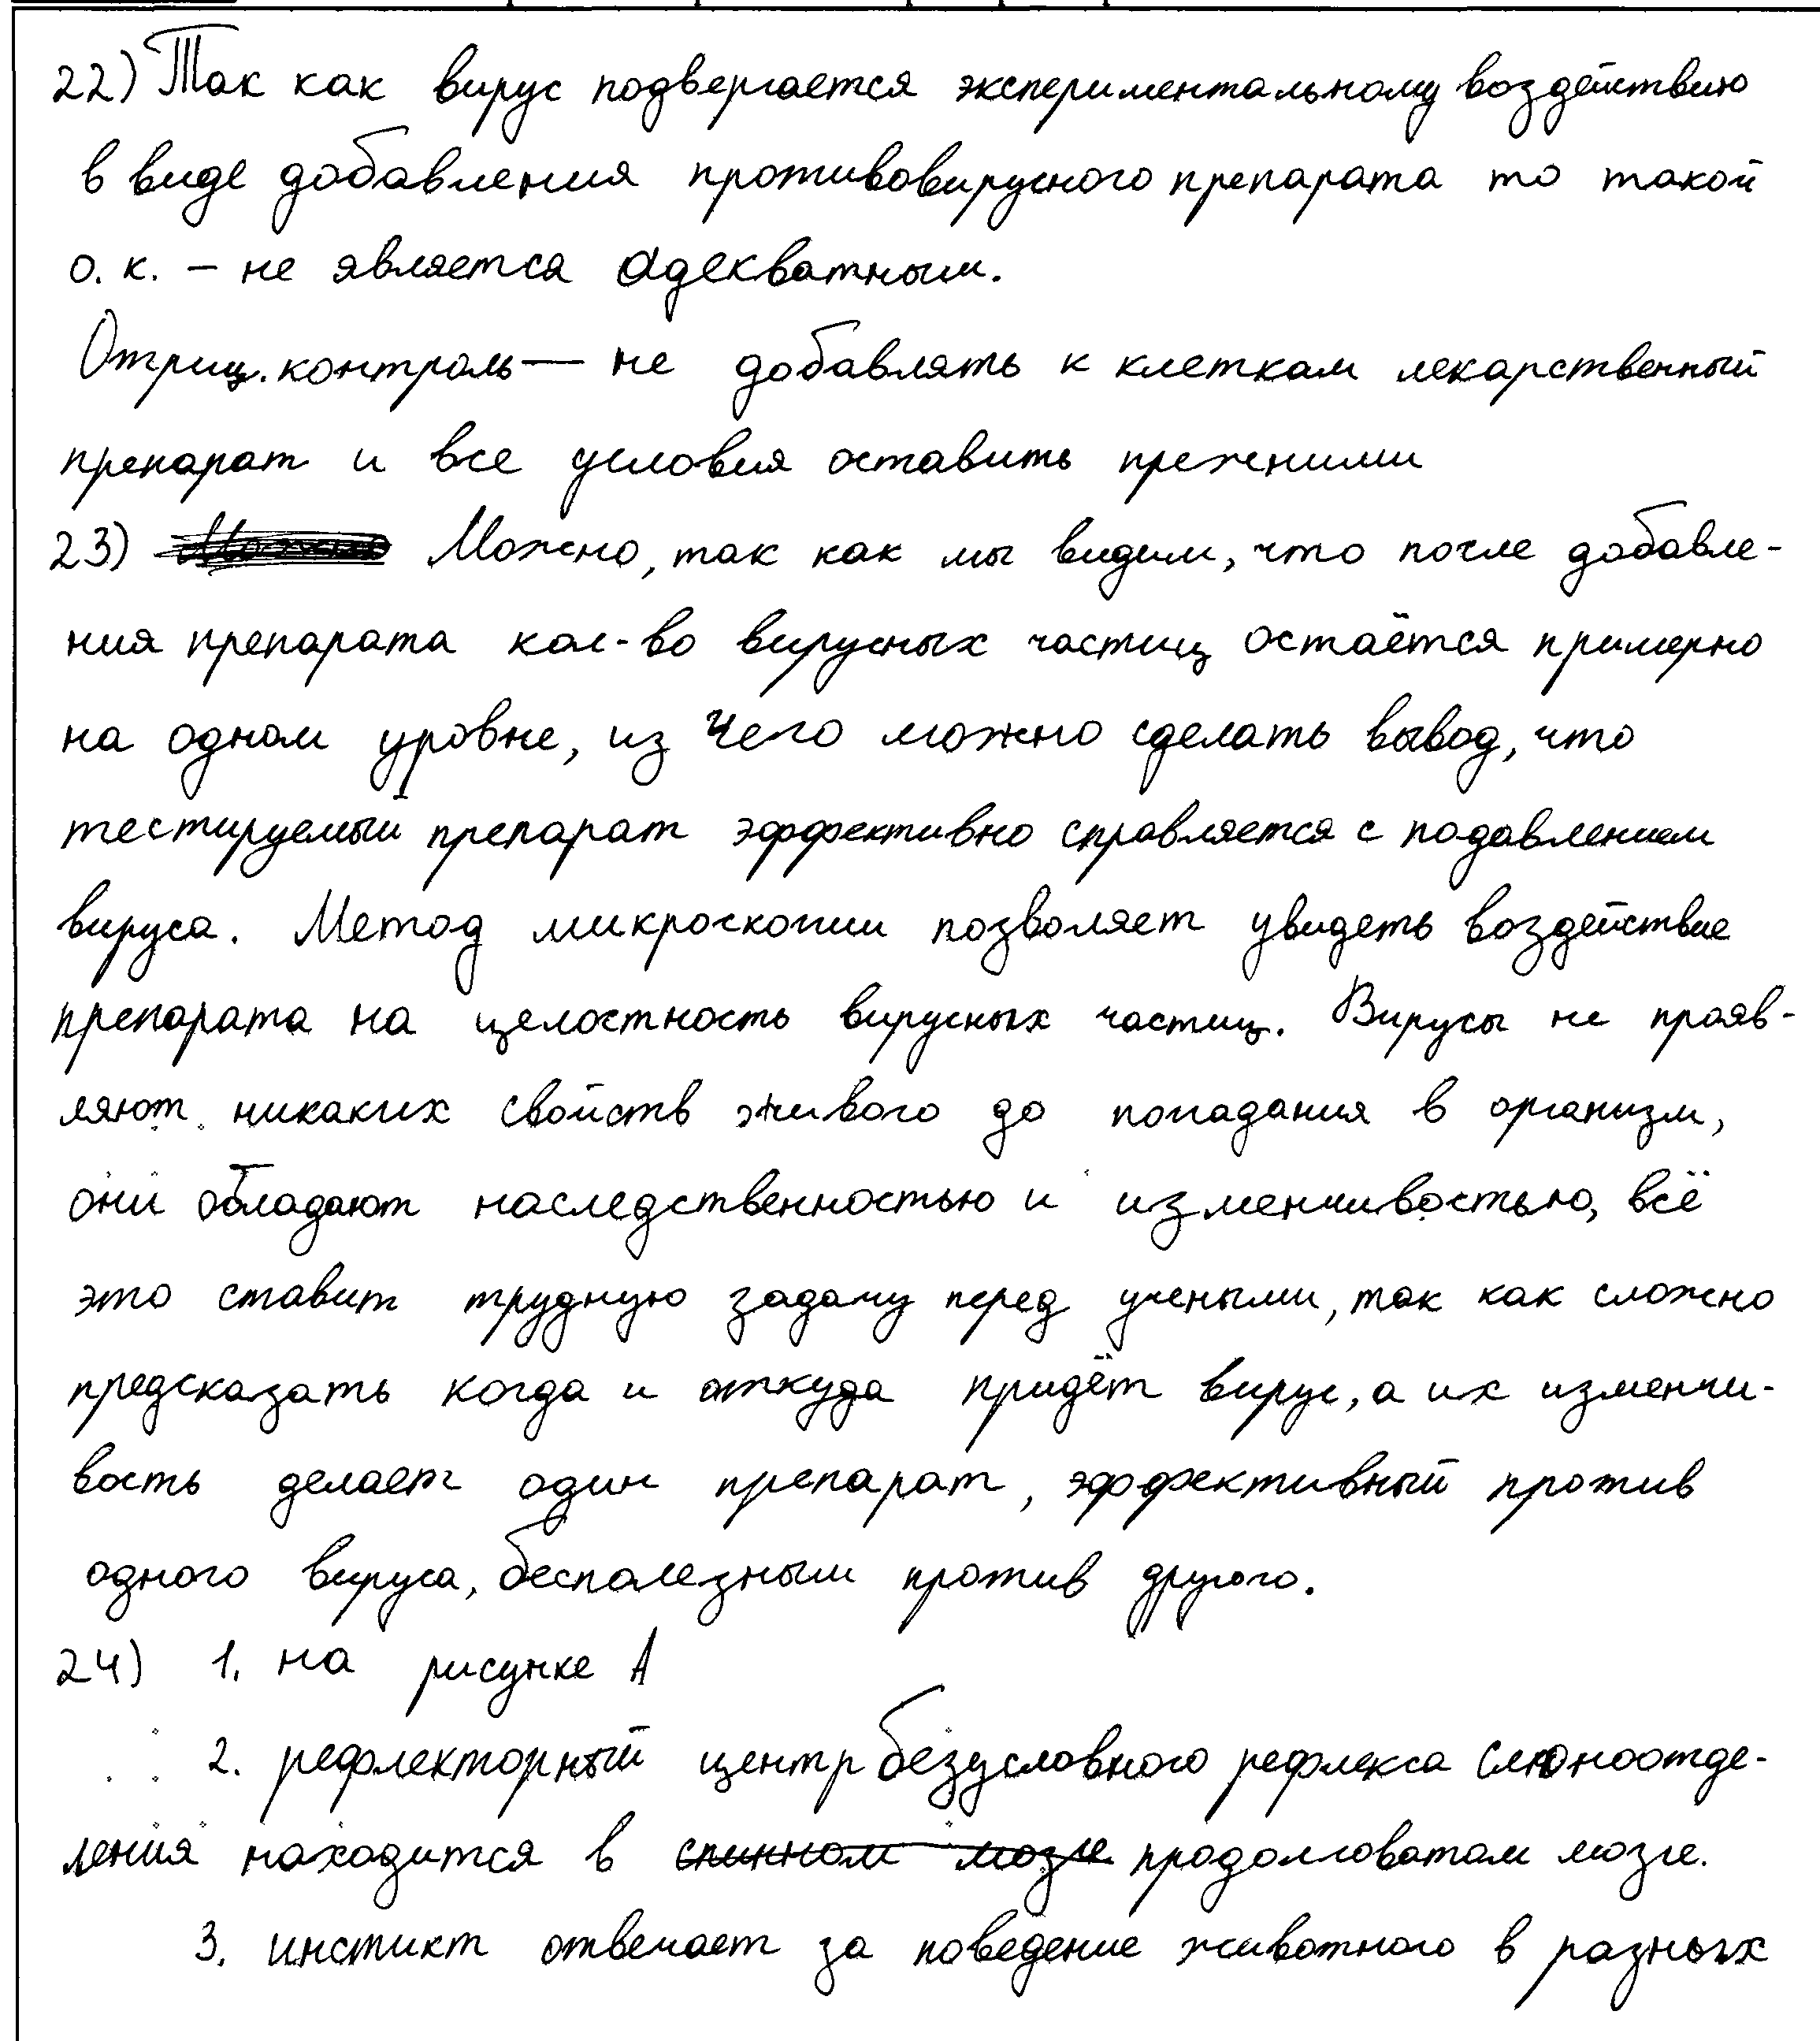 22) Так как вирус подвергается экспериментальному воздействию
в виде добавления противовирусного препарата то такой
о. к. – не является адекватным.
Отриц. контроль — не добавлять к клеткам лекарственный
препарат и все условия оставить прежними
23) Можно Можно, так как мы видим, что после добавле-
ния препарата кол-во вирусных частиц остаётся примерно
на одном уровне, из чего можно сделать вывод, что
тестируемый препарат эффективно справляется с подавлением
вируса. Метод микроскопии позволяет увидеть воздействие
препарата на целостность вирусных частиц. Вирусы не прояв-
ляют никаких свойств живого до попадания в организм,
они обладают наследственностью и изменчивостью, всё
это ставит трудную задачу перед учеными, так как сложно
предсказать когда и откуда придёт вирус, а их изменчи-
вость делает один препарат, эффективный против
одного вируса, бесполезным против другого.
24) 1. на рисунке А
2. рефлекторный центр безусловного рефлекса слюноотде-
ления находится в спинном мозге продолговатом мозге.
3. инстикт отвечает за поведение животного в разных